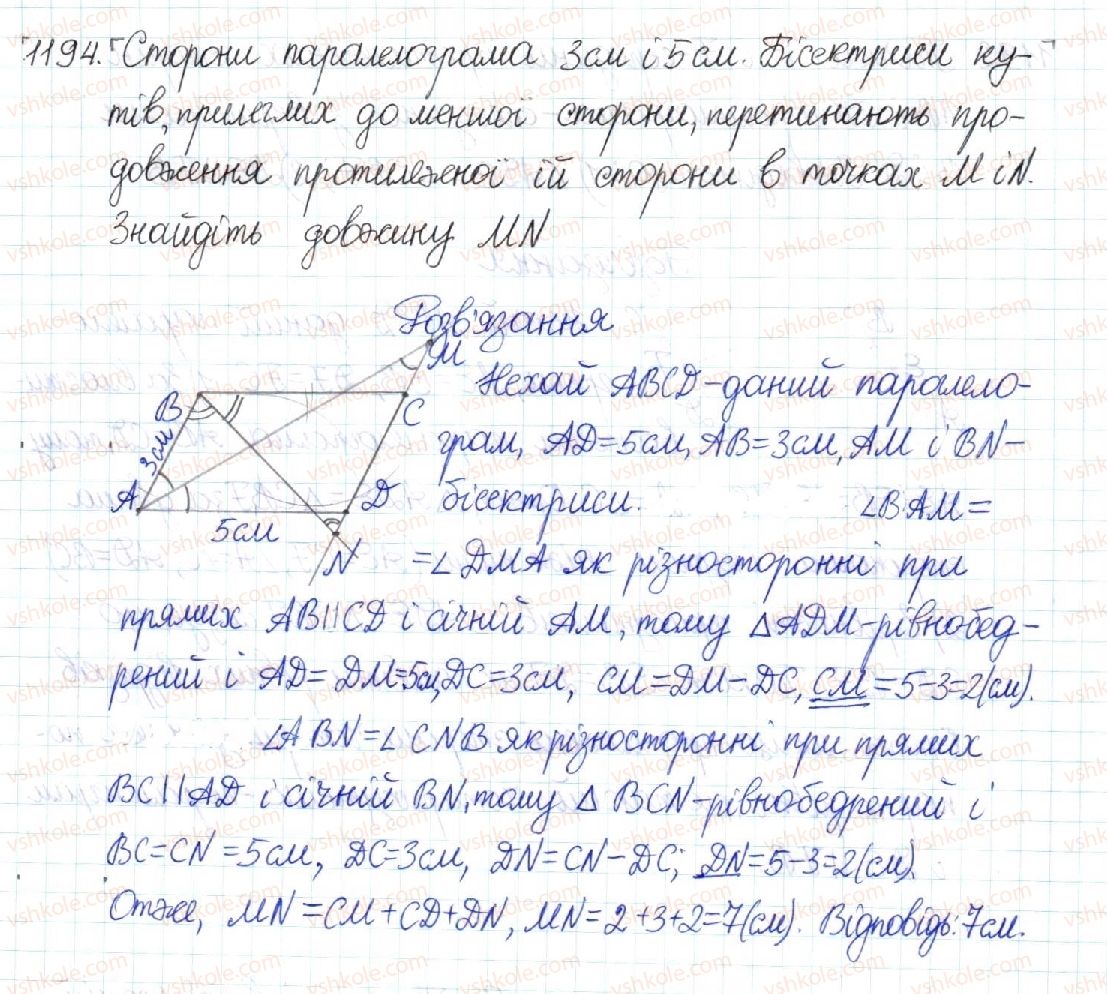 1194. Сторони паралелограма 3см і 5см. Бісектриси ку-
тів, прилеглих до меншої сторони, перетинають про-
довження протилежної їй сторони в точках M і N.
Знайдіть довжину MN
Розв'язання
M
B
C
3см
A
D
5см
N
Нехай ABCD-даний парало-
грам, AD=5см, AB=3см, AM і BN-
бісектриси. ∠BAM=
=∠DMA як різносторонні при
прямих AB||CD і січній AM, тому △ADM-рівнобед-
рений і AD=DM=5см, DC=3см, CM=DM-DC, CM=5-3=2(см).
∠ABN=∠CNB як різносторонні при прямих
BC||AD і січній BN, тому △ BCN-рівнобедрений і
BC=CN=5см, DC=3см, DN=CN-DC; DN=5-3=2(см).
Отже, MN=CM+CD+DN, MN=2+3+2=7(см). Відповідь: 7см.